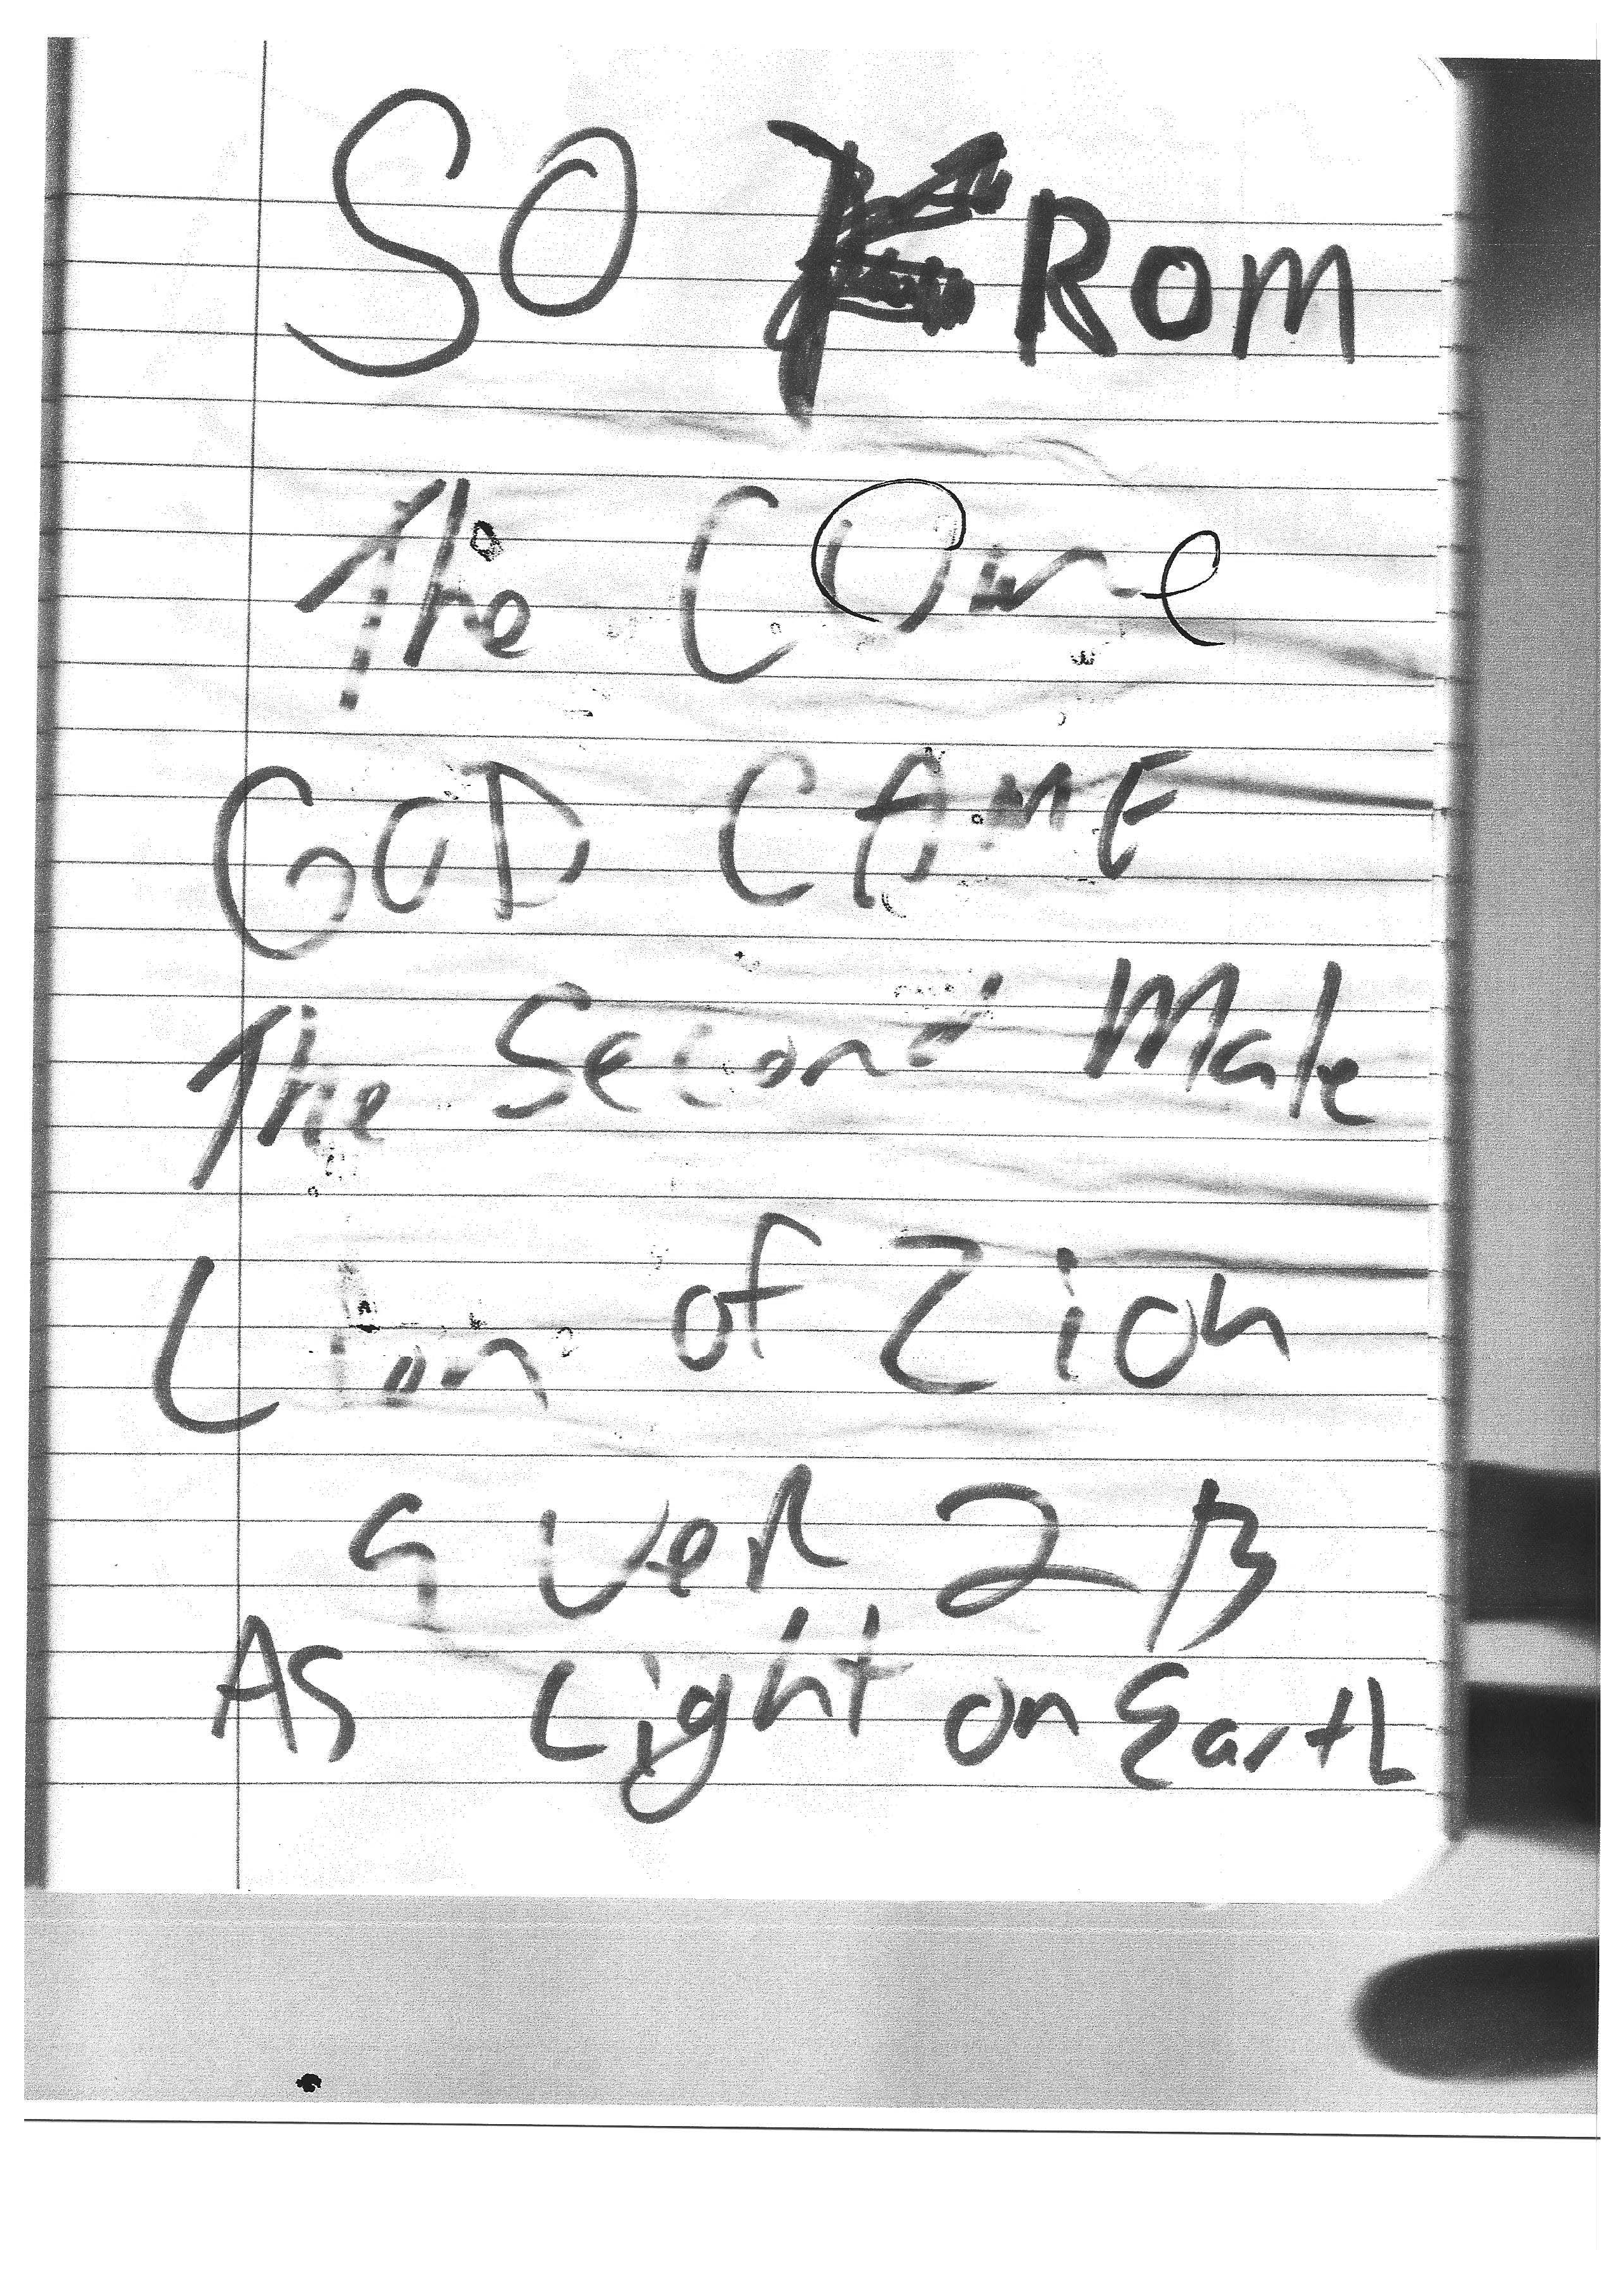 SO FROM
The Core
GOD CAME
The Second Male
Lion of Zion
a ver 2 B
As Light on Earth